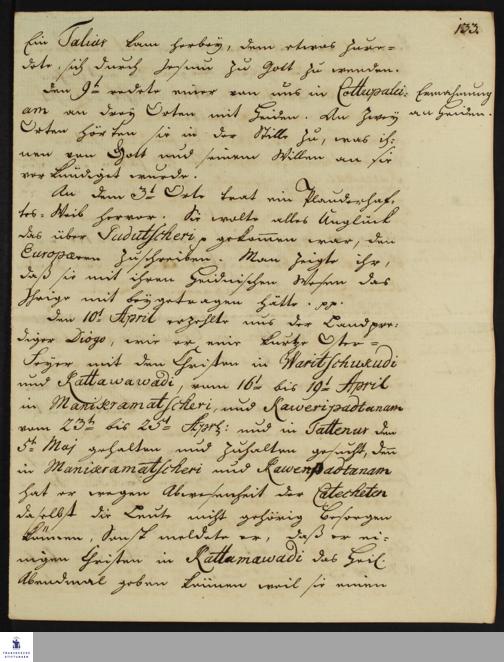 133.
Ein Taliar kam herbey, dem etwas zure-
dete, sich durch Jesum zu Gott zu wenden.
Den 9t redete einer von uns in Cottupalei-
am an drey Orten mit Heiden. An zwey
Ermahnung
an Heiden.
Orten hörten sie in der Stille zu, was ih-
nen von Gott und seinem Willen an sie
verkündiget wurde.
An dem 3t Orte trat ein Plauderhaf-
tes Weib hervor. Sie wolte alles Unglück
das über Pudutscheri gekommen war, den
Europaeern zuschreiben. Man zeigte ihr,
daß sie mit ihrem Heidnischen Wesen das
Ihrige mit beygetragen hätte. pp.
Den 10t April erzehlte uns der Landpre-
diger Diogo, wie er eine kurtze Oster-
Feyer mit den Christen in Waritschukudi
und Kattawawadi, vom 16t bis 19t April
in Manikramatscheri, und Kaweripadtanam
vom 23t bis 25t Apr: und in Tattenur den
5t Maj gehalten und zuhalten gesucht, den
in Manikramatscheri und Kaweripadtanam
hat er wegen Abwesenheit der Catecheten
daselbst die Leute nicht gehörig besorgen
können, Sonst meldete er, daß er ei-
nigen Christen in Kattamawadi das Heil.
Abendmal geben können weil sie einen
FRANCKESCHE
STIFTUNGEN